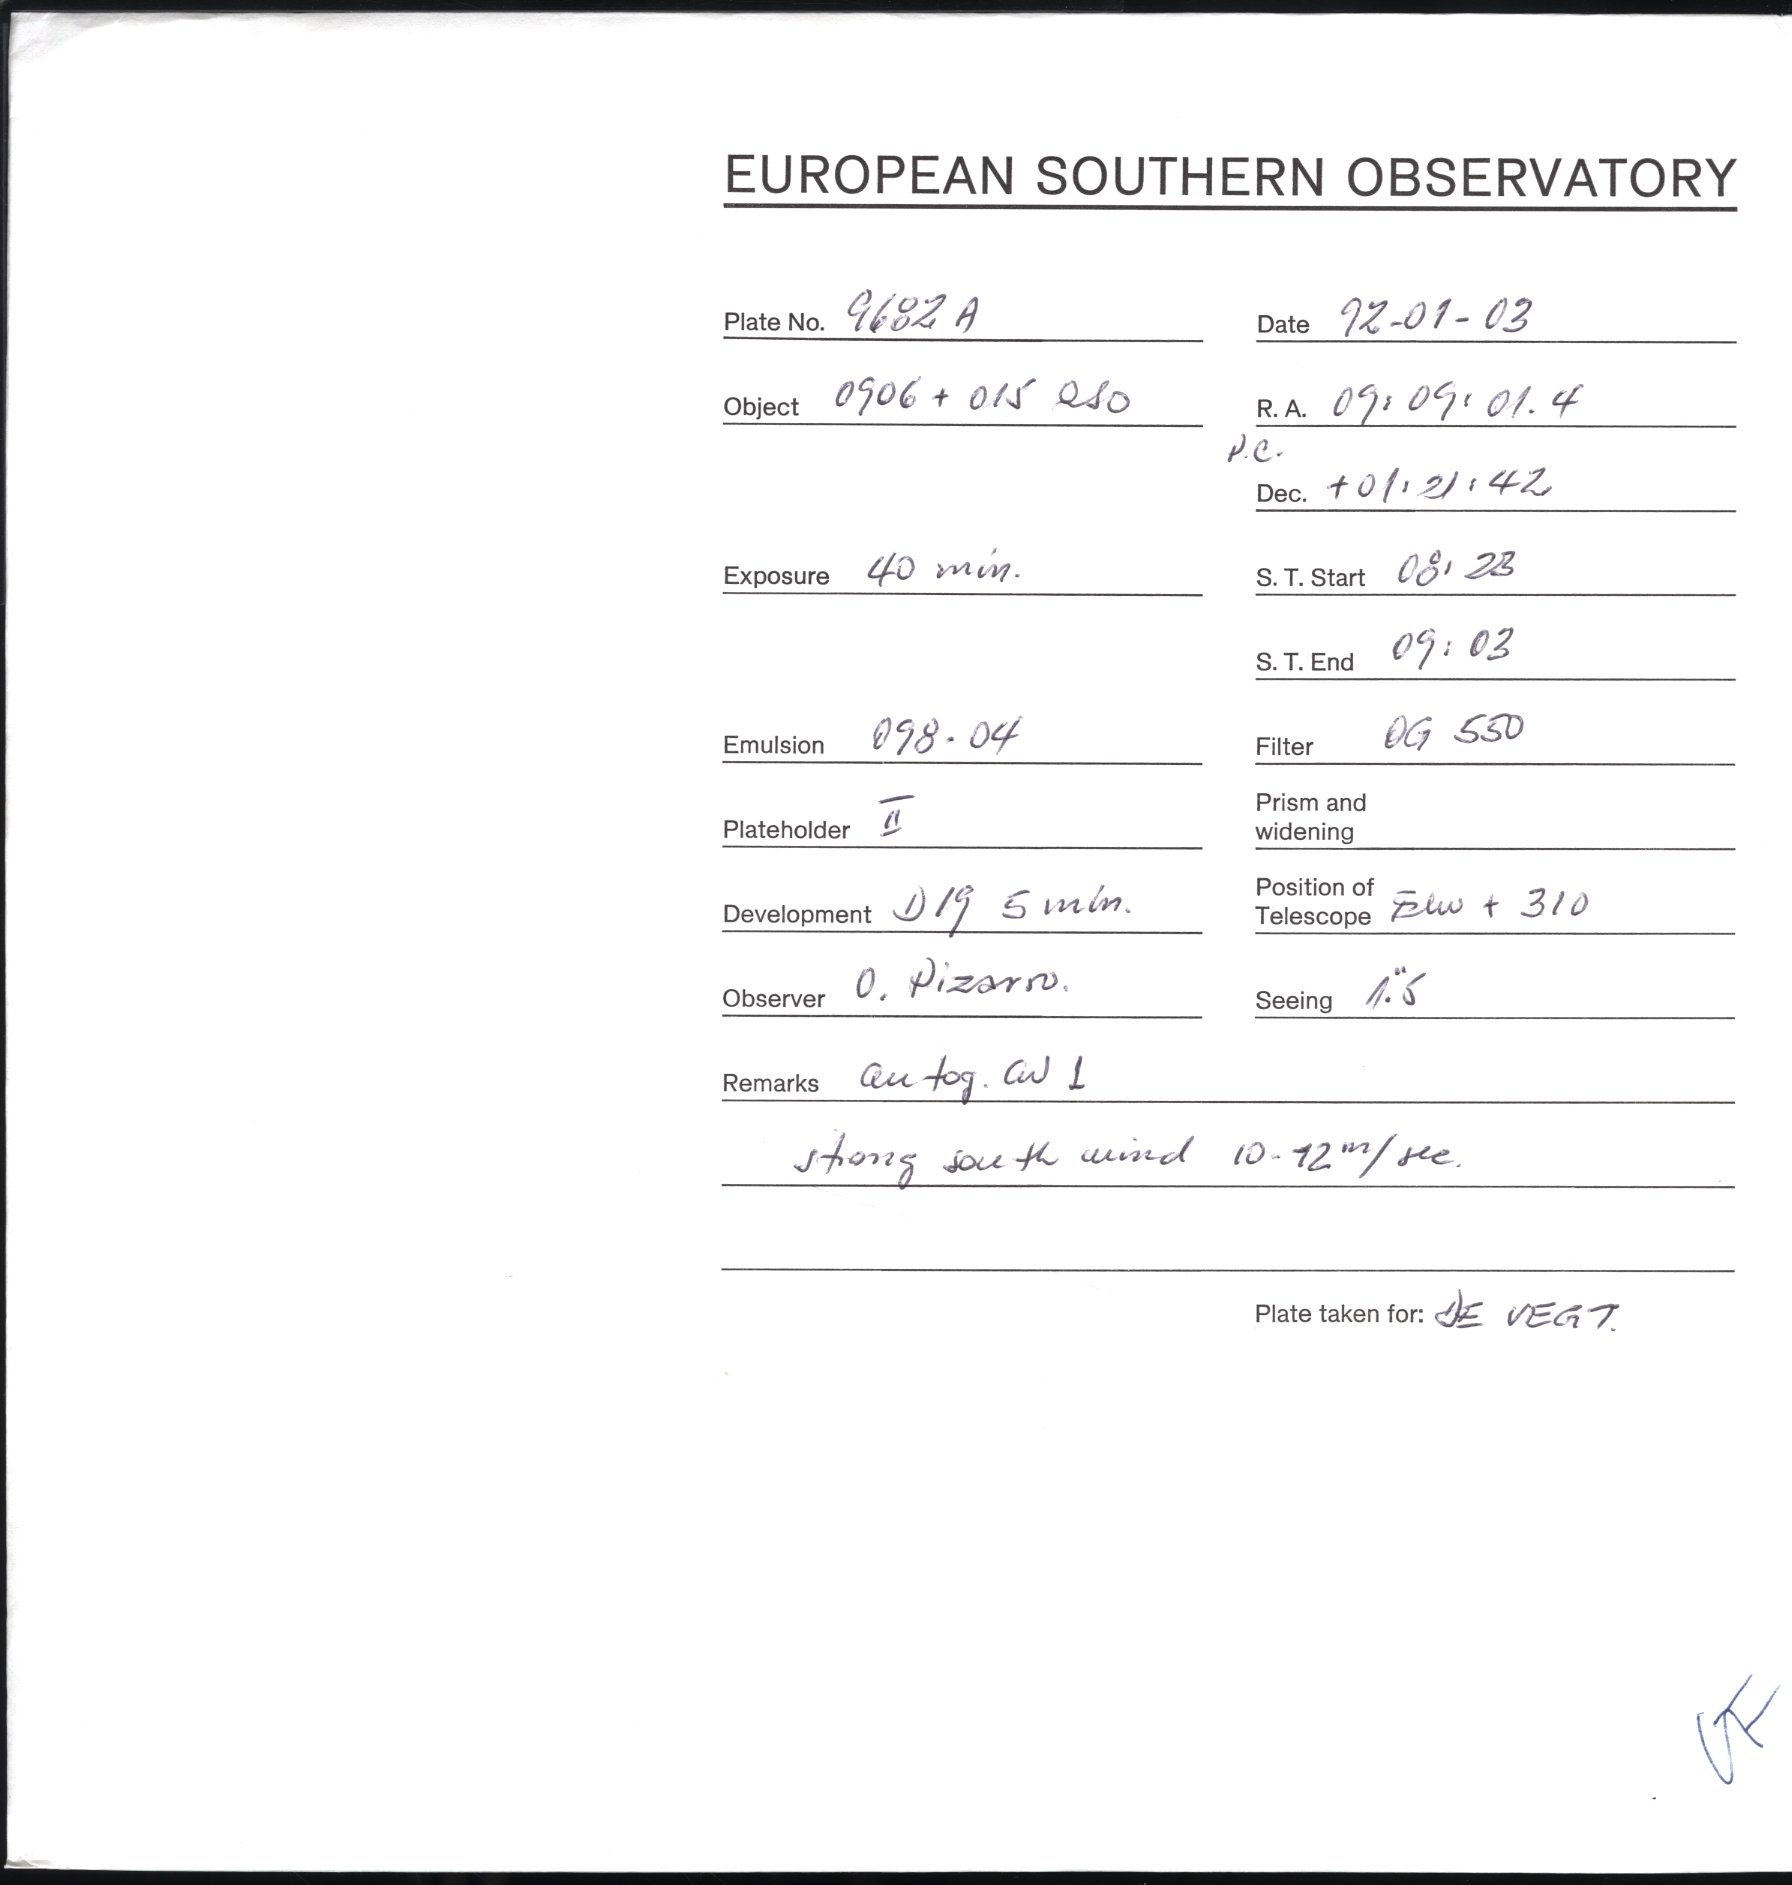 EUROPEAN SOUTHERN OBSERVATORY
Plate No. 9682 A
Date 92-01-03
Object 0906 + 015 QSO
R. A. 09: 09: 01.4
P.C.
Dec. +01: 21: 42
Exposure 40 min.
S. T. Start 08: 23
S. T. End 09: 03
Emulsion 098-04
Filter OG 550
Plateholder II
Prism and
widening
Development D19 5 min.
Position of
Telescope + 310
Observer O. Pizarro.
Seeing 1".5
Remarks autog. 1
strong south wind 10-12 m/sec.
Plate taken for: DE VEGT.